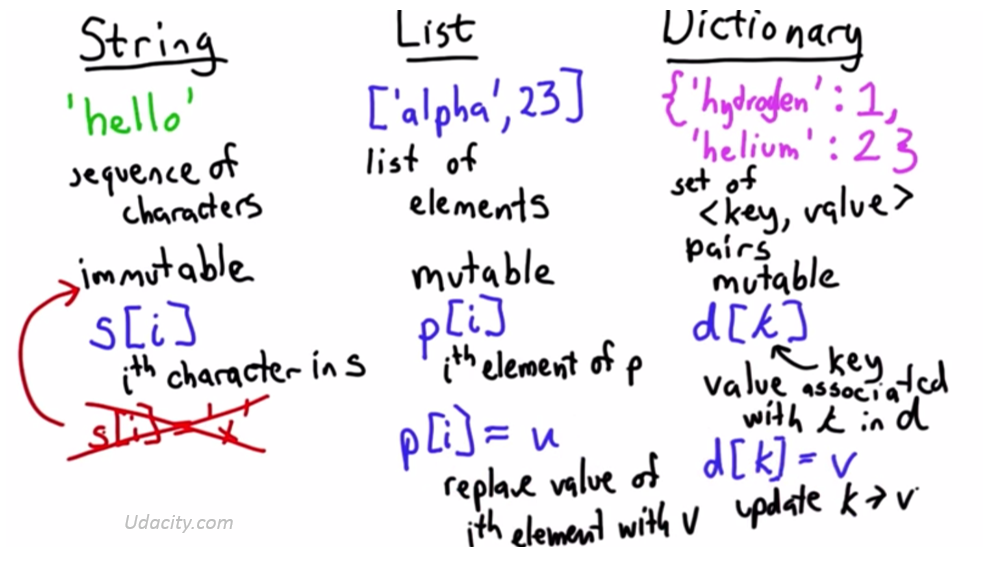 String
'hello'
sequence of
characters
immutable
s[i]
ith character in s
s[i] = 'x'
List
['alpha', 23]
list of
elements
mutable
p[i]
ith element of p
p[i] = u
replave value of
ith element with v
Dictionary
{'hydrogen' : 1,
'helium' : 2 }
set of
<key, value>
pairs
mutable
d[k]
key
value associated
with k in d
d[k] = v
update k → v
Udacity.com